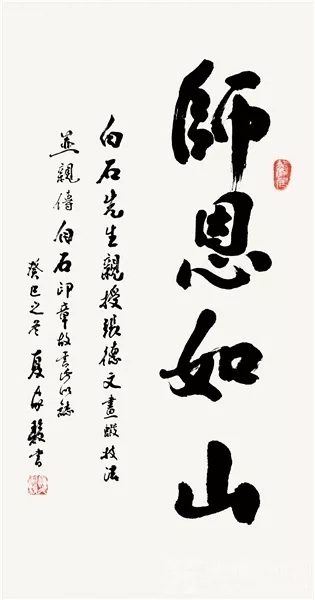 師恩如山
白石先生親授張德文畫蝦技法
並親傳白石印章故以誌
癸巳之冬夏家駿書